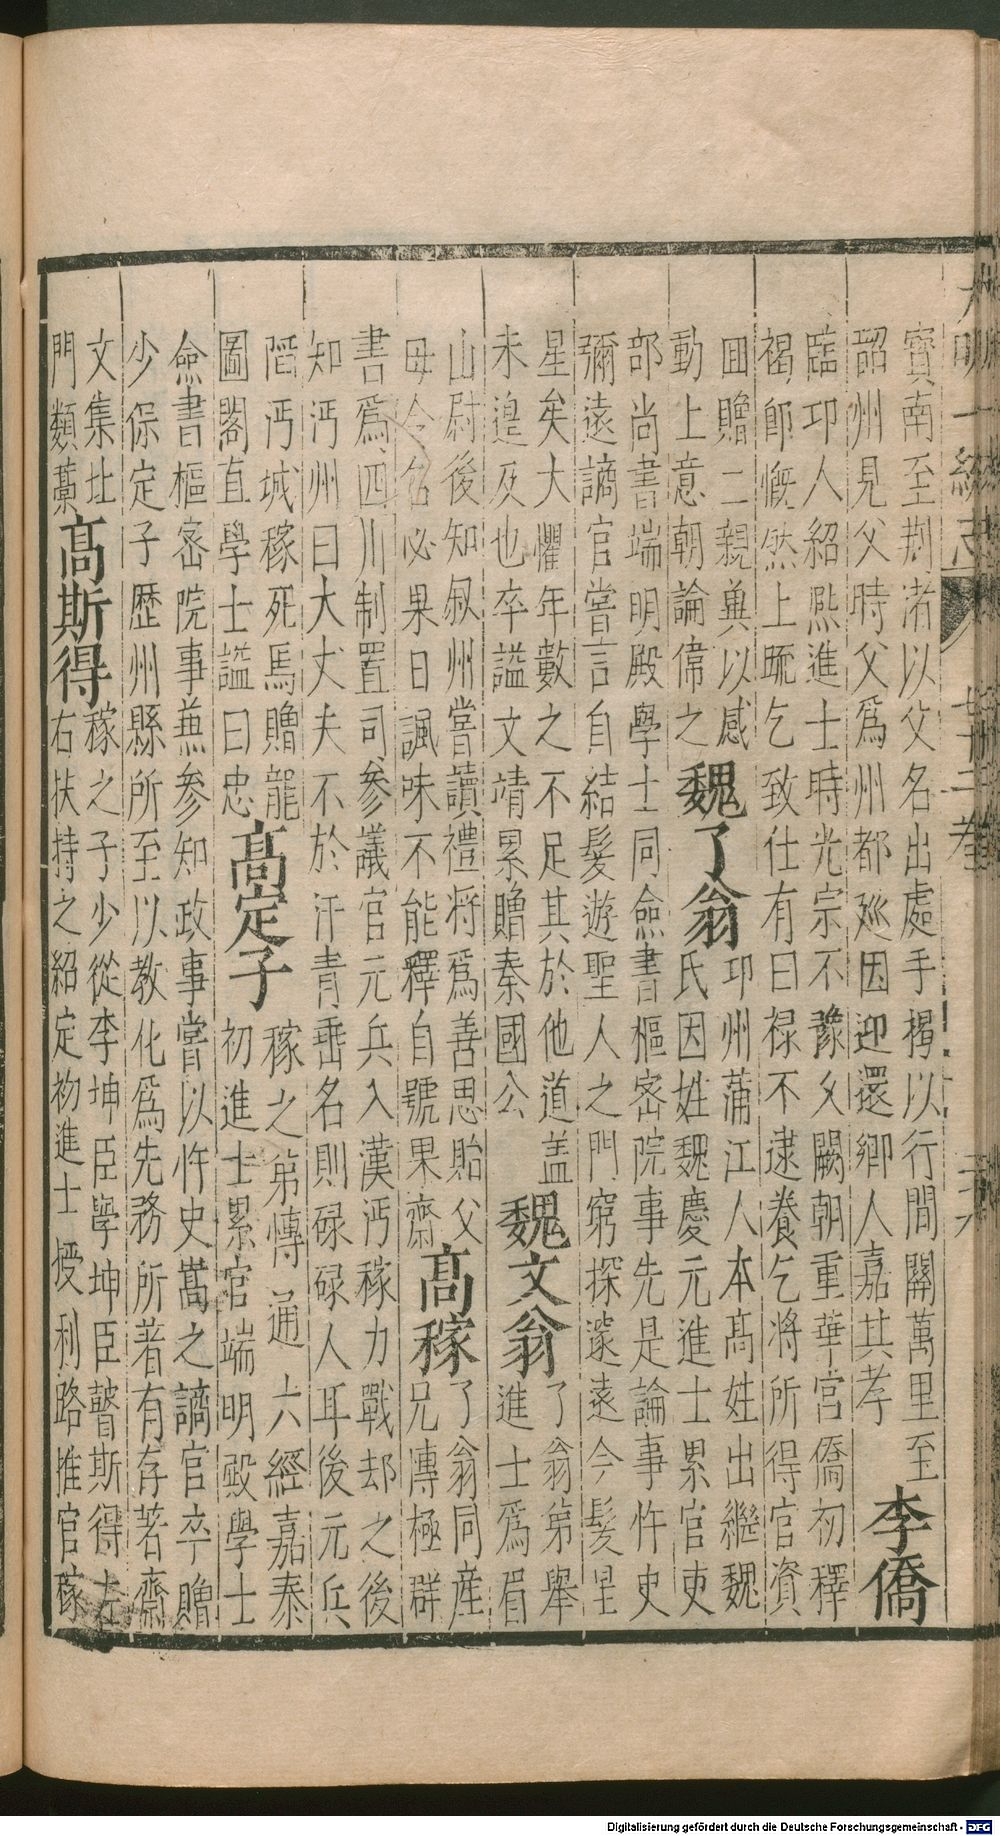 寳南至荆渚以父名出處手榜以行間關萬里至
韶州見父時父爲州都廵因迎還鄉人嘉其孝 李僑
臨卭人紹熈進士時光宗不豫乆闕朝重華宮僑初釋
褐卽慨然上䟽乞致仕有曰禄不逮養乞將所得官資
囬贈二親兾以感
動上意朝論偉之 魏了翁
卭州蒲江人本髙姓出繼魏
氏因姓魏慶元進士累官吏
部尚書端明殿學士同僉書樞宻院事先是論事忤史
彌遠謫官嘗言自結髪遊聖人之門窮探邃遠今髪星
星矣大懼年數之不足其於他道盖
未遑及也卒謚文靖累贈秦國公 魏文翁
了翁弟舉
進士爲眉
山尉後知叙州嘗讀禮將爲善思貽父
母令名必果日諷味不能釋自號果齋 髙稼
了翁同産
兄愽極群
書爲四川制置司參議官元兵入漢沔稼力戰却之後
知沔州曰大丈夫不於汗青埀名則碌碌人耳後元兵
䧟沔城稼死焉贈龍
圖閣直學士謚曰忠 髙定子
稼之弟愽通六經嘉泰
初進士累官端明殿學士
僉書樞宻院事兼參知政事嘗以忤史嵩之謫官卒贈
少保定子歴州縣所至以教化爲先務所著有存著齋
文集北
門類藁 髙斯得
稼之子少從李坤臣學坤臣瞽斯得左
右扶持之紹定初進士授利路推官稼
Digitalisierung gefördert durch die Deutsche Forschungsgemeinschaft - DFG